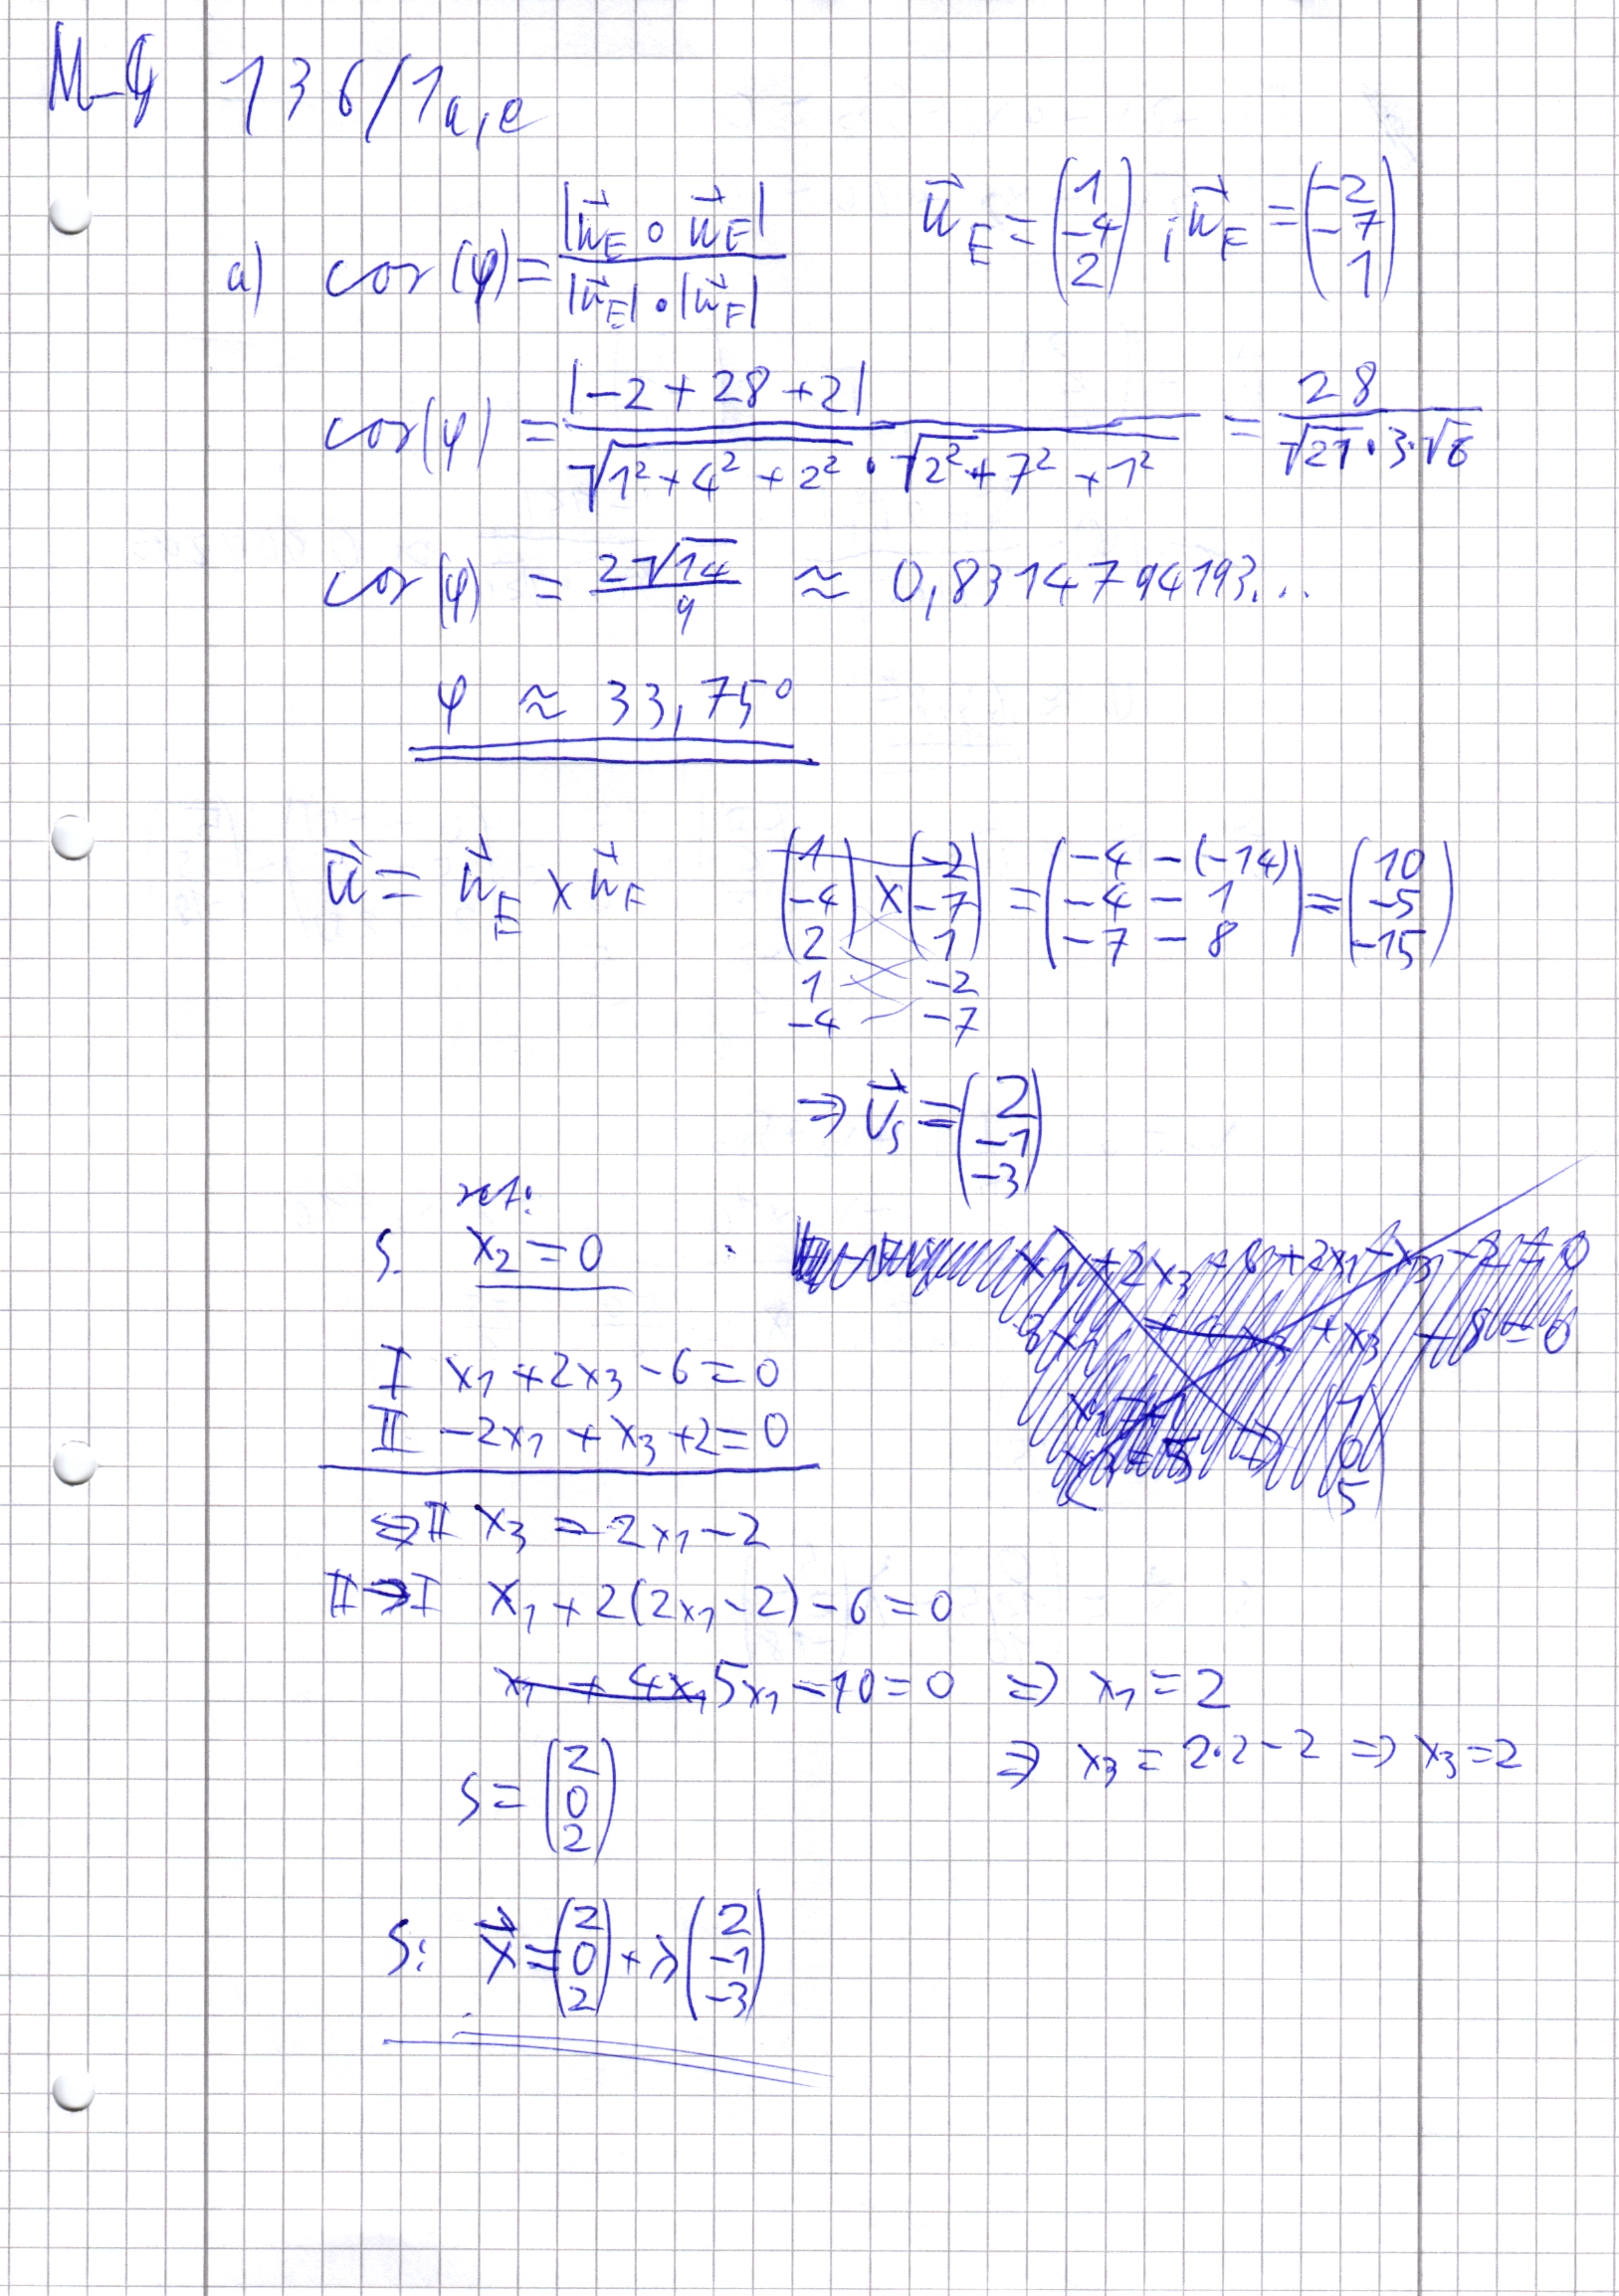 M-G 136/1a,e
a) cos(φ) = |n⃗_E ∘ n⃗_F| / (|n⃗_E| · |n⃗_F|)   n⃗_E = (1 -4 2) ; n⃗_F = (-2 -7 1)
cos(φ) = |-2 + 28 + 2| / (√(1² + 4² + 2²) · √(2² + 7² + 1²)) = 28 / (√21 · 3·√6)
cos(φ) = 2√14 / 9 ≈ 0,8314794193...
φ ≈ 33,75°
u⃗ = n⃗_E × n⃗_F   (1 -4 2) × (-2 -7 1) = (-4 - (-14) -4 - 1 -7 - 8) = (10 -5 -15)
1 -2
-4 -7
⇒ v⃗_s = (2 -1 -3)
set:
S. x₂ = 0
I x₁ + 2x₃ - 6 = 0
II -2x₁ + x₃ + 2 = 0
⇔ II x₃ = 2x₁ - 2
II → I x₁ + 2(2x₁ - 2) - 6 = 0
x₁ + 4x₁ 5x₁ - 10 = 0 ⇒ x₁ = 2
⇒ x₃ = 2·2 - 2 ⇒ x₃ = 2
S = (2 0 2)
S: x⃗ = (2 0 2) + λ (2 -1 -3)